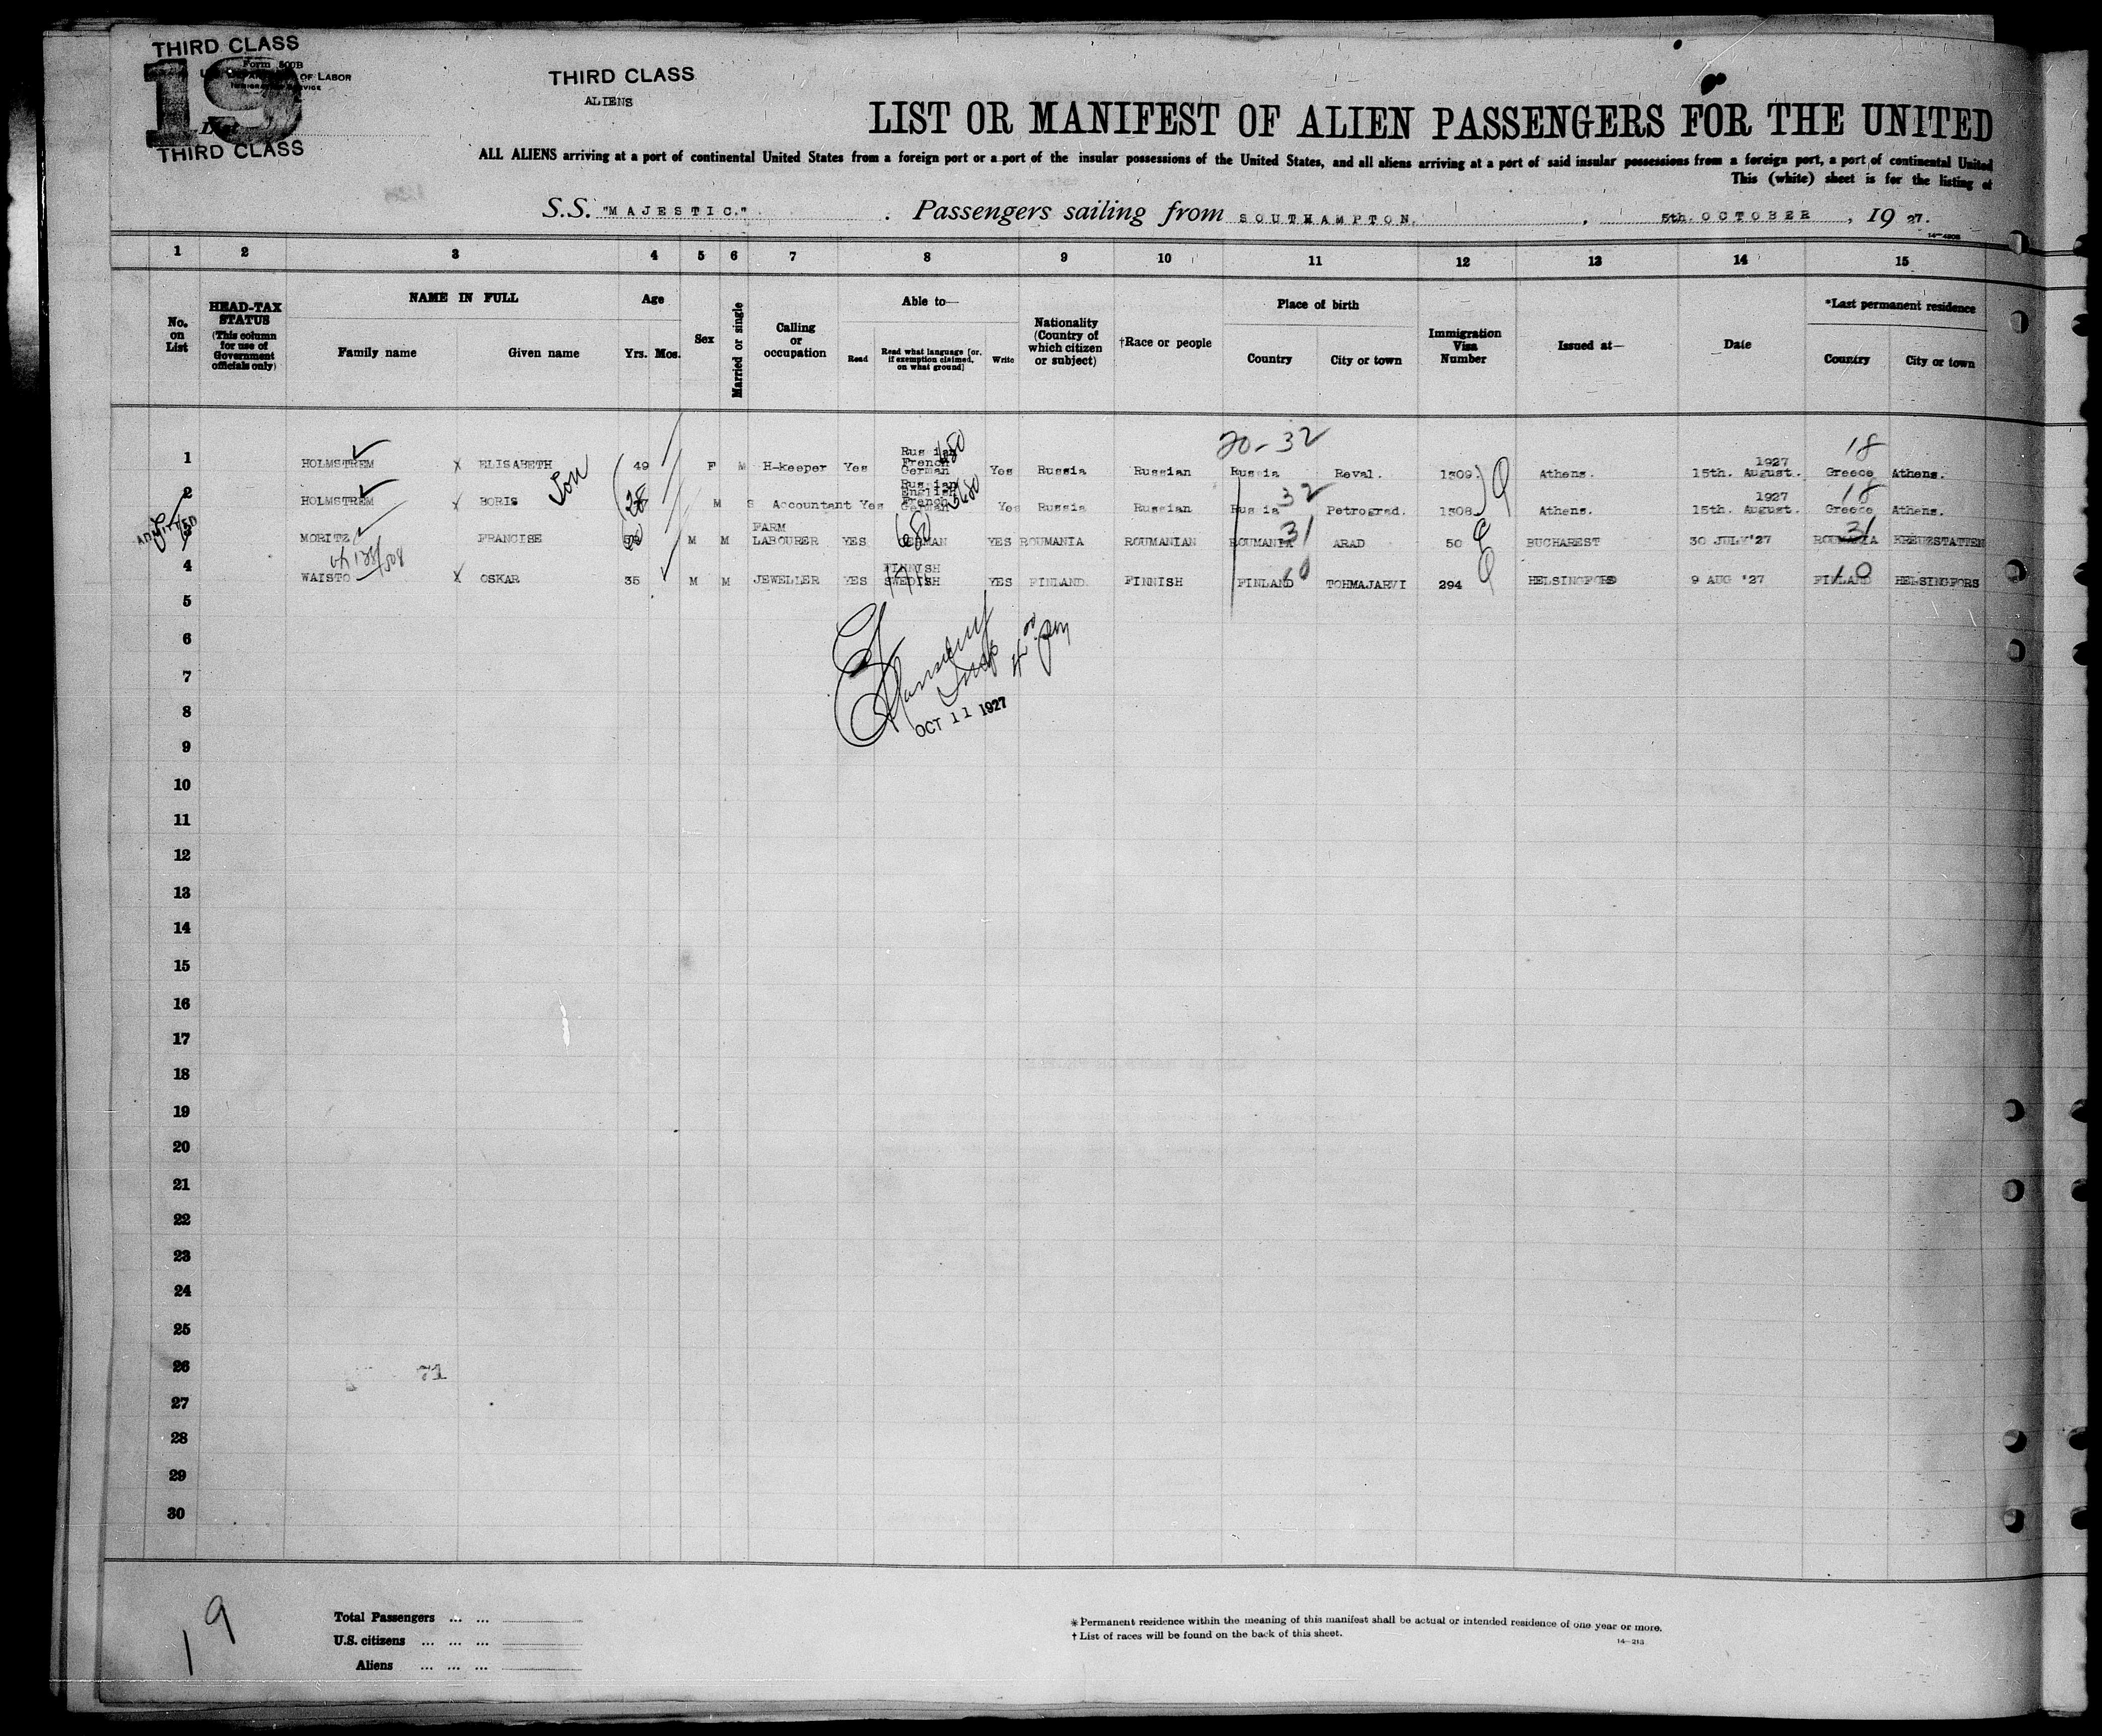 THIRD CLASS
Form 500B
OF LABOR
IMMIGRATION SERVICE
19
List
THIRD CLASS
THIRD CLASS
ALIENS
LIST OR MANIFEST OF ALIEN PASSENGERS FOR THE UNITED
ALL ALIENS arriving at a port of continental United States from a foreign port or a port of the insular possessions of the United States, and all aliens arriving at a port of said insular possessions from a foreign port, a port of continental United
This (white) sheet is for the listing of
S.S. "MAJESTIC." Passengers sailing from SOUTHAMPTON. , 5th. OCTOBER , 19 27.
1 2 3 4 5 6 7 8 9 10 11 12 13 14 15
No. on List
HEAD-TAX STATUS
(This column for use of Government officials only)
NAME IN FULL
Family name Given name
Age
Yrs. Mos.
Sex
Married or single
Calling or occupation
Able to—
Read
Read what language [or, if exemption claimed, on what ground]
Write
Nationality (Country of which citizen or subject)
†Race or people
Place of birth
Country City or town
Immigration Visa Number
Issued at—
Date
*Last permanent residence
Country City or town
20-32 18
1 HOLMSTREM X ELISABETH 49 F M H-keeper Yes Russian French German Yes Russia Russian Russia Reval. 1309. Athens. 15th. August. 1927 Greece Athens.
Son
2 HOLMSTREM BORIS 28 M S Accountant Yes Russian English French German Yes Russia Russian Russia 32 Petrograd. 1308. Athens. 15th. August. 1927 18 Greece Athens.
ADMITTED
3 MORITZ FRANCISE M M FARM LABOURER YES 680 GERMAN YES ROUMANIA ROUMANIAN ROUMANIA 31 ARAD 50 BUCHAREST 30 JULY'27 ROUMANIA 31 KREUZSTATTEN
4 WAISTO X OSKAR 35 M M JEWELLER YES FINNISH SWEDISH YES FINLAND. FINNISH FINLAND 10 TOHMAJARVI 294 HELSINGFORS 9 AUG '27 FINLAND 10 HELSINGFORS
5
6
7
OCT 11 1927
8
9
10
11
12
13
14
15
16
17
18
19
20
21
22
23
24
25
26
27
28
29
30
19
Total Passengers ... ...
U.S. citizens ... ... ...
Aliens ... ... ...
*Permanent residence within the meaning of this manifest shall be actual or intended residence of one year or more.
†List of races will be found on the back of this sheet.
14—213